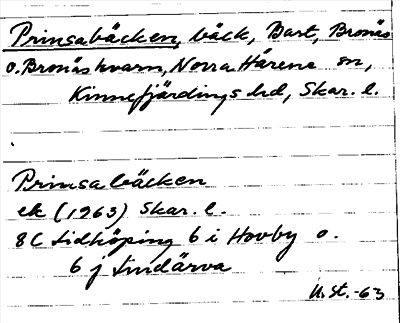 Prinsabäcken, bäck, Bart, Bronäs
o. Bronäs kvarn, Norra Härene sn,
Kinnefjärdings hd, Skar. l.
Prinsabäcken
ek (1963) Skar. l.
8C Lidköping 6 i Hovby o.
6 j Lindärva
U. St. -63